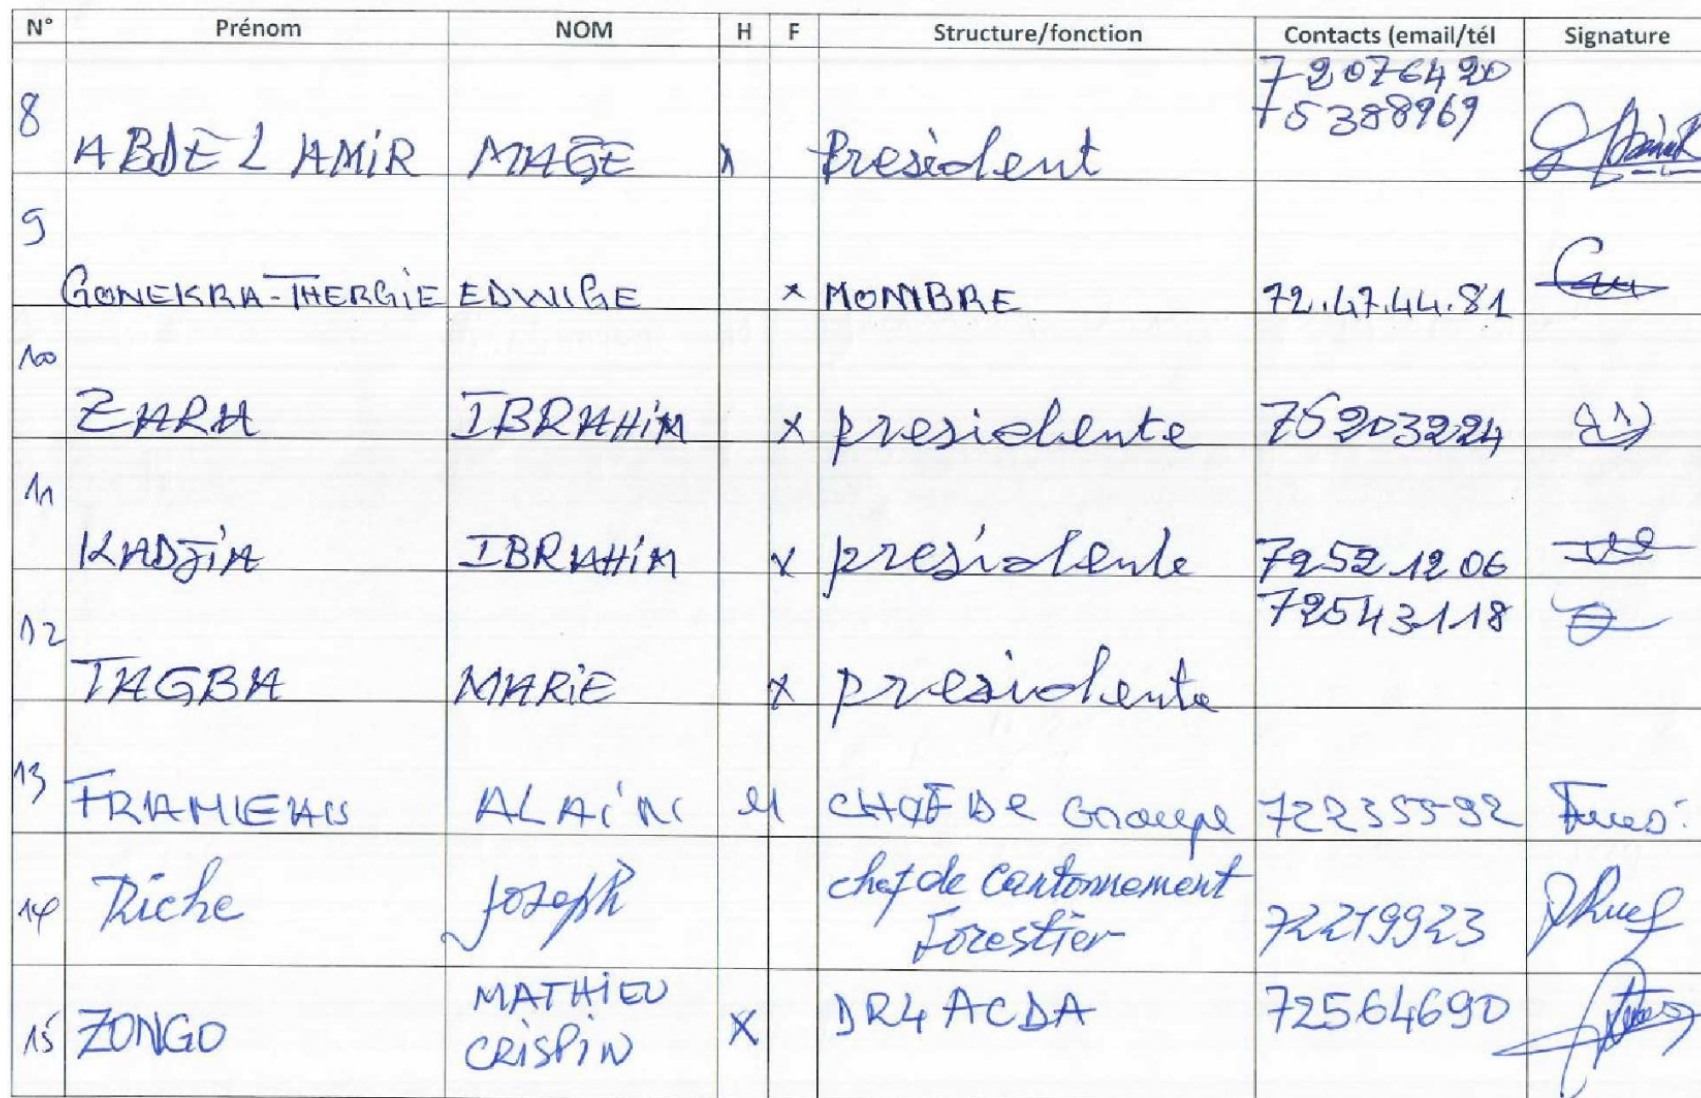 N° Prénom NOM H F Structure/fonction Contacts (email/tél Signature
72076420
8 75388969
ABDEL AMIR MAGE President
9
GONEKRA-THERGIE EDWIGE x MOMBRE 72.47.44.81
10
ZARA IBRAHIM x presidente 75203224
11
KADJIA IBRAHIM x presidente 72521206
12 72543118
TAGBA MARIE x presidente
13 FRAMIEAU ALAIN CHEF DE Groupe 72235592
14 Riche Joseph chef de Cantonnement
Forestier 72219923
15 ZONGO MATHIEU
CRISPIN X DR4 ACDA 72564690